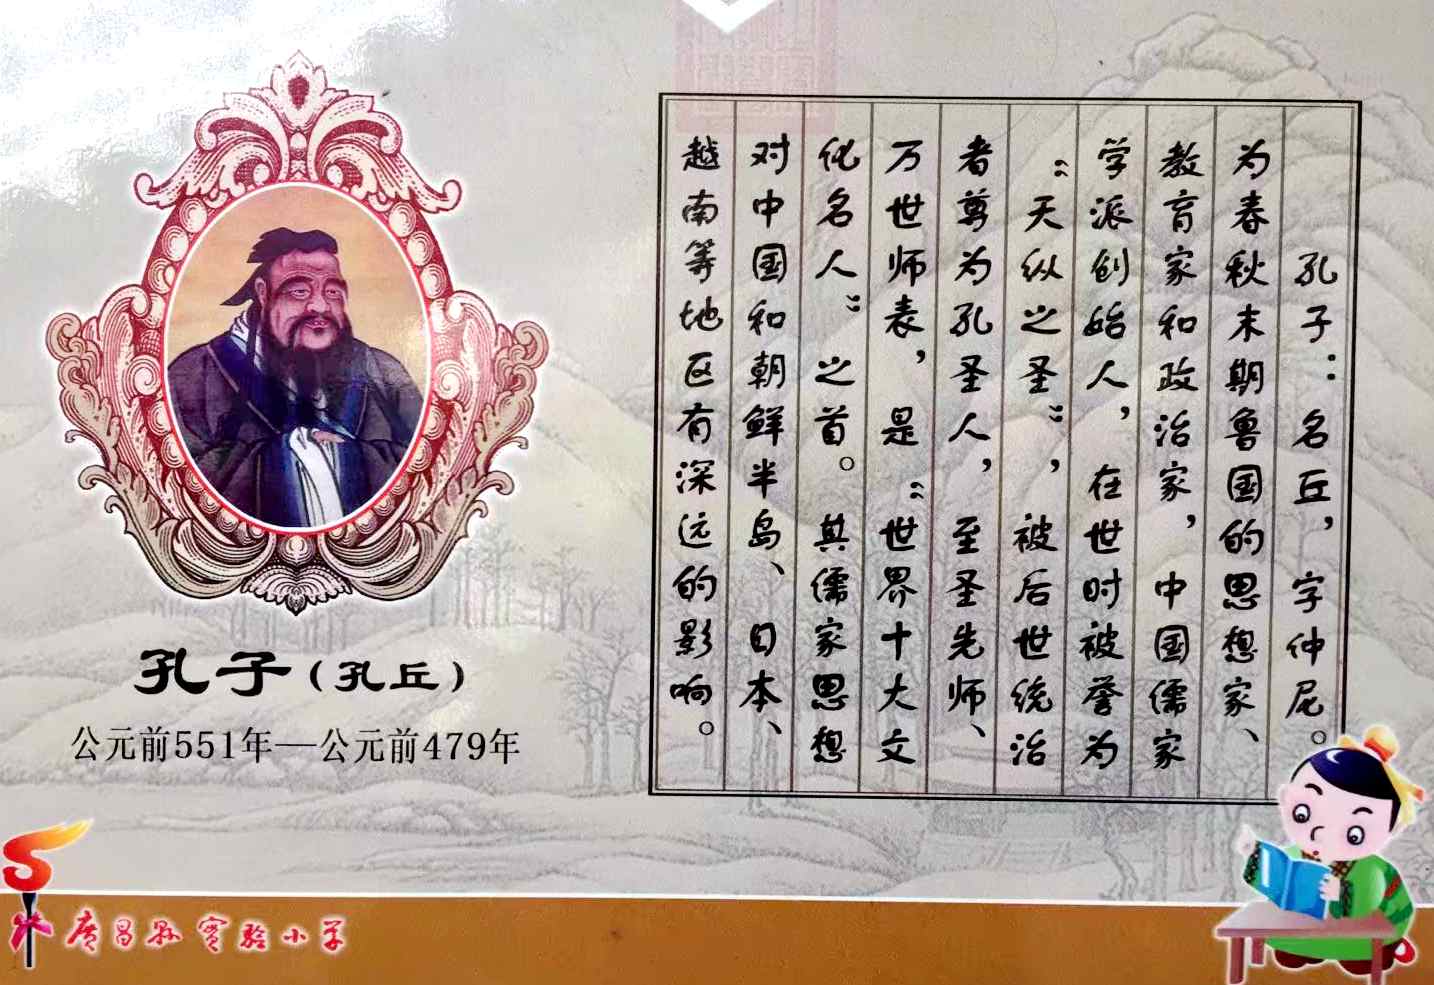 孔子：名丘，字仲尼。
为春秋末期鲁国的思想家、
教育家和政治家，中国儒家
学派创始人，在世时被誉为
“天纵之圣”，被后世统治
者尊为孔圣人，至圣先师、
万世师表，是“世界十大文
化名人”之首。其儒家思想
对中国和朝鲜半岛、日本、
越南等地区有深远的影响。
孔子（孔丘）
公元前551年—公元前479年
廣昌縣實驗小学